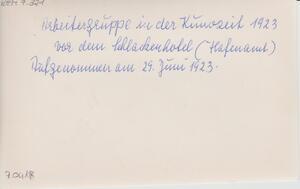 Arbeitergruppe in der Kunozeit 1923
vor dem Schlackenhotel (Hafenamt)
Aufgenommen am 29. Juni 1923.